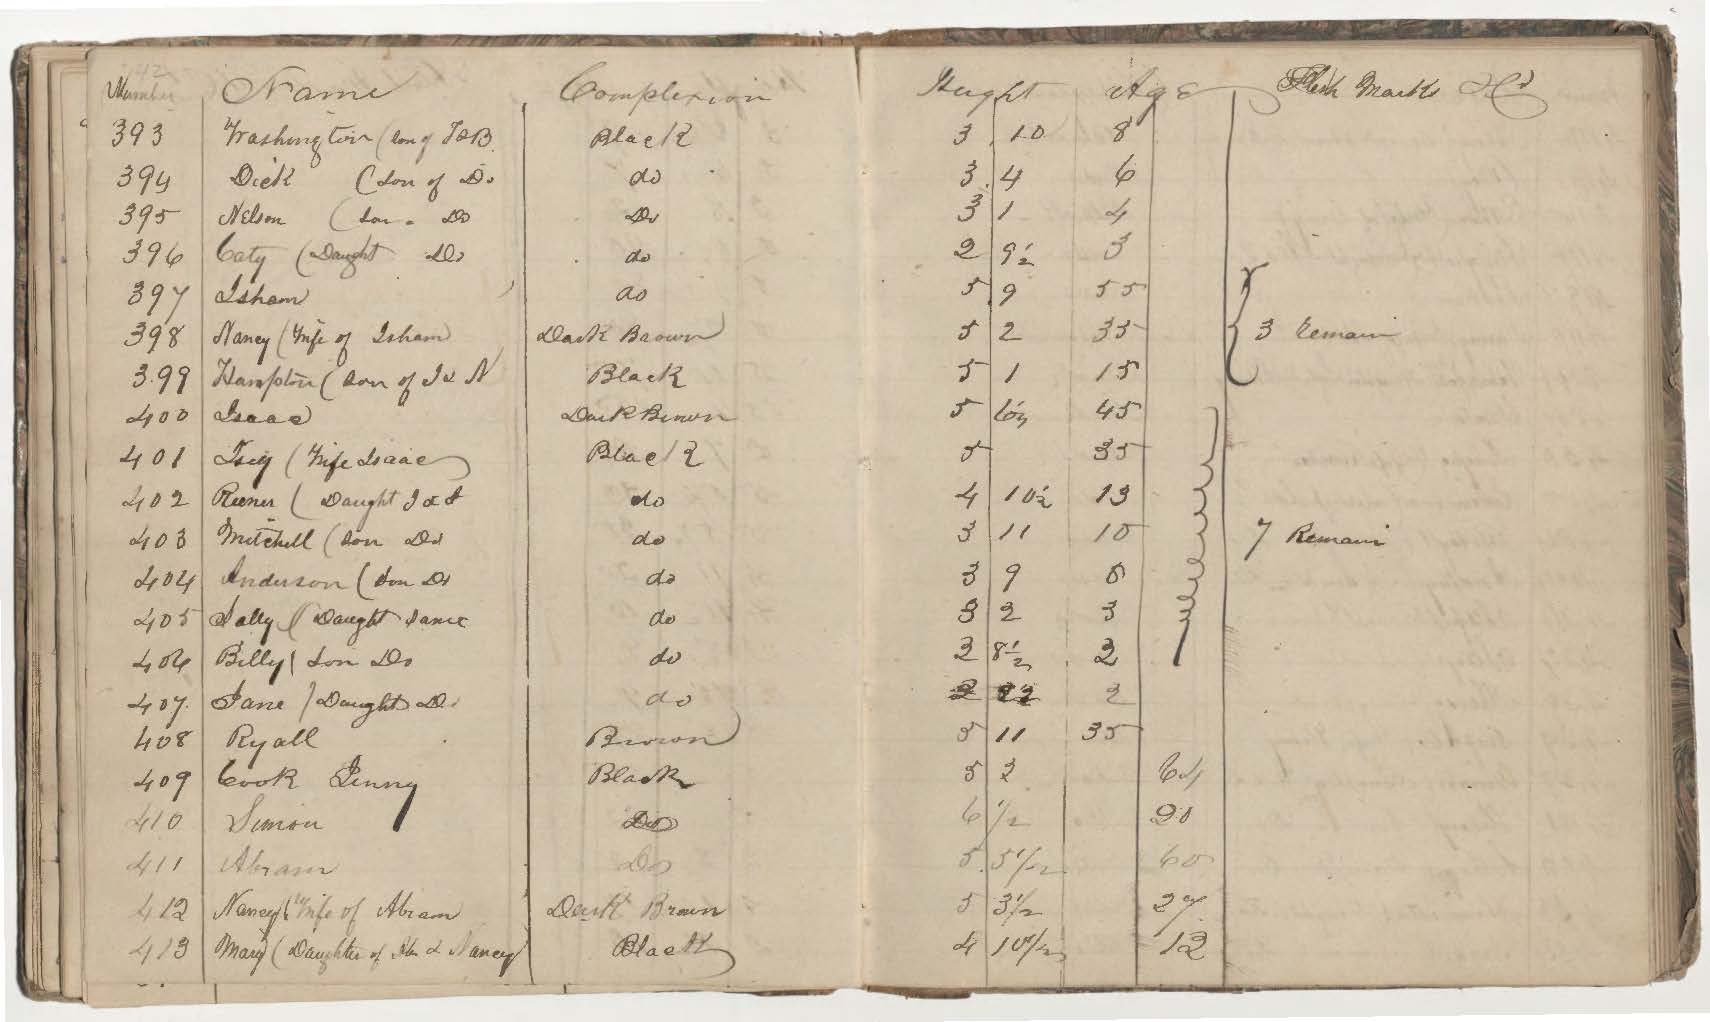 42
Number Name Complexion Height Age Flesh Marks &c
393 Washington (Son of T&B Black 3 10 8
394 Dick (Son of Do do 3 4 6
395 Nelson (Son " Do Do 3 1 4
396 Caty (Daught Do do 2 9½ 3
397 Isham do 5 9 55
398 Nancy (Wife of Isham Dark Brown 5 2 35 3 Remain
399 Hampton (Son of I & N Black 5 1 15
400 Isaac Dark Brown 5 45
401 (Wife Isaac Black 5 35
402 (Daught I & I do 4 10½ 13
403 Mitchell (Son Do do 3 11 10 7 Remain
404 Anderson (Son Do do 3 9
405 Sally (Daught Same do 3 2 3
406 Billy (Son Do do 2 8½ 2
407 Jane (Daught Do do 2 2
408 Ryall Brown 5 11 35
409 Cook Jenny Black 5 2 64
410 Simon Do 6 ½ 20
411 Abram Do 5 5½ 60
412 Nancy (Wife of Abram Dark Brown 5 3½ 27
413 Mary (Daughter of Ab & Nancy Black 4 10½ 12